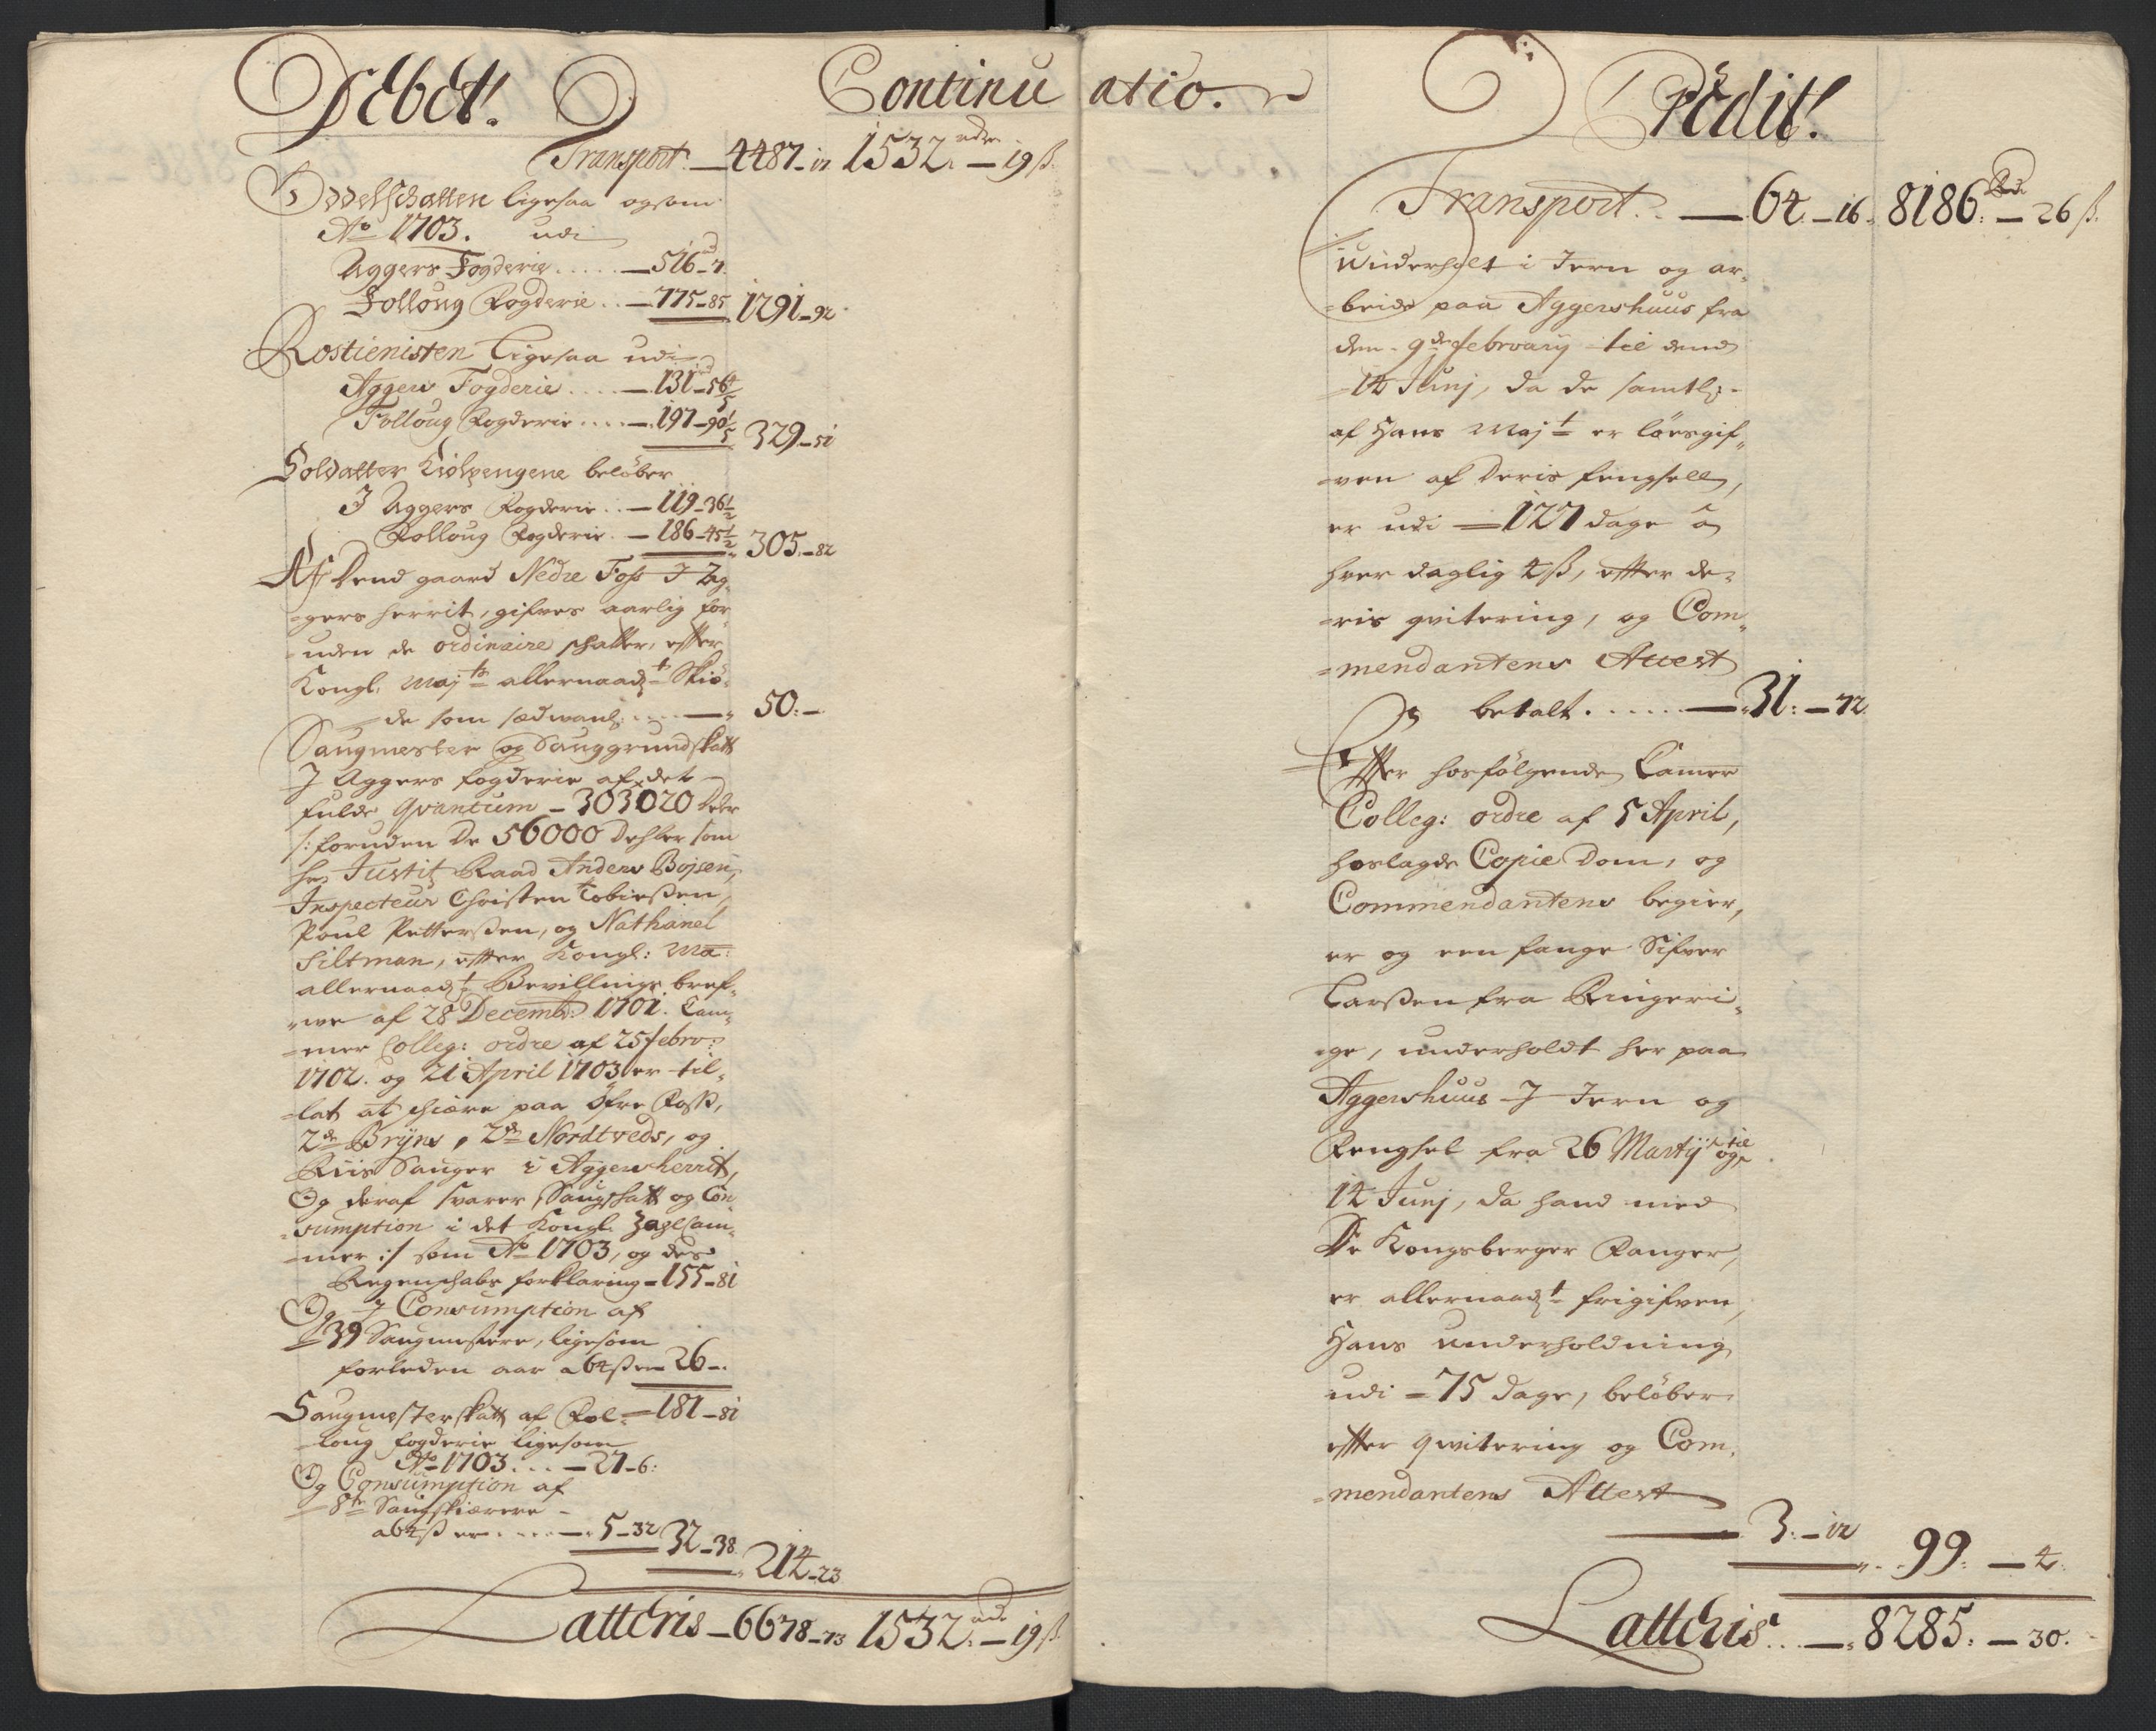 Debet. Continu
Transport. — 4487 – 12 1532. rdr – 19 ß.
Oddelschatten ligesaa ogsom
Ao 1703. udi
Aggers Fogderie ..... — 516 – 7.
Folloug Fogderie .. — 775 – 85 1291 – 92
Rostienisten Ligesaa udi
Aggers Fogderie ..... — 131 – 56 4/5
Folloug Fogderie .... — 197 – 90 1/5 329 – 51
Soldatter Kiolpengene beløber
J Aggers Fogderie .. — 119 – 36 1/2
Folloug Fogderie. — 186 – 45 1/2 305. – 82
Af Dend gaard Nedre Foss J Ag-
-gers herrit, gifves aarlig for
-uden de ordinaire schatter, efter
Kongl. Maj ts allernaad te Skiø-
de som sædvanl: .... — 50: –
Saugmester og Sauggrundskatt
J Aggers fogderie af det
fulde Qvantum – 303020 Deler
/: foruden De 56000 Dehler som
Hr Justitz Raad Anders Bojsen,
Inspecteur Christen Tobiesen,
Poul Pettersen, og Nathanel
Siltman, efter Kongl: Ma:
allernaad te Bevillings bref-
-we af 28 Decemb: 1701. Cam-
-mer Colleg: ordre af 25 febro:
1702. og 21 April 1703 er til-
-lat at schiære paa Øfre Foss,
2de Bryns, 2de Nordtveds, og
Riis Sauger i Aggersherrit,
Og deraf svarer Saugschatt og Con-
-sumption i det Kongl. Zahlcam-
-mer :/ som Ao 1703, og des
Regenschabs forklaring – 155 – 81
Og J Consumption af
39 Saugmestere, ligesom
forleden aar a 64 ß er 26 –.
181 – 81
Saugmesterskatt af Fol-
-loug fogderie ligesom
Ao 1703 ... — 27 – 6:
Og Consumption af
8te Saugskiærere –
a 64 ß er .... — 5 – 32 32 – 38.
214 – 23
Latteris – 6678 – 73 1532. rd. – 19 ß
atio. Credit.
Transport. — 64. – 16. 8186. Rd. – 26 ß.
Underholt i Jern og ar-
-beide paa Aggershuus fra
den 9de february til dend
14 Junj, da de samtl:
af Hans Maj t er løesgif-
-ven af Deris fengsell,
er udi — 127 dage à
hver daglig 4 ß, efter de-
-ris qvitering, og Com-
-mendantens Attest
betalt. ..... — 31: – 72.
Efter hosfølgende Camer
Colleg: ordre af 5 April,
hoslagde Copie Dom, og
Commendantens begier,
er og een fange Sifver
Larsen fra Ringeri-
-ge, underholdt her paa
Aggershuus J Jern og
Fengsel fra 26 Martij og til
14 Junj, da hand med
De Kongsberger Fanger,
er allernaad t frigifven,
Hans underholdning
udi – 75 dage, beløber
efter qvitering og Com-
-mendantens Attest
— 3. – 12
99: — 4.
Latteris ... —. 8285. — 30.